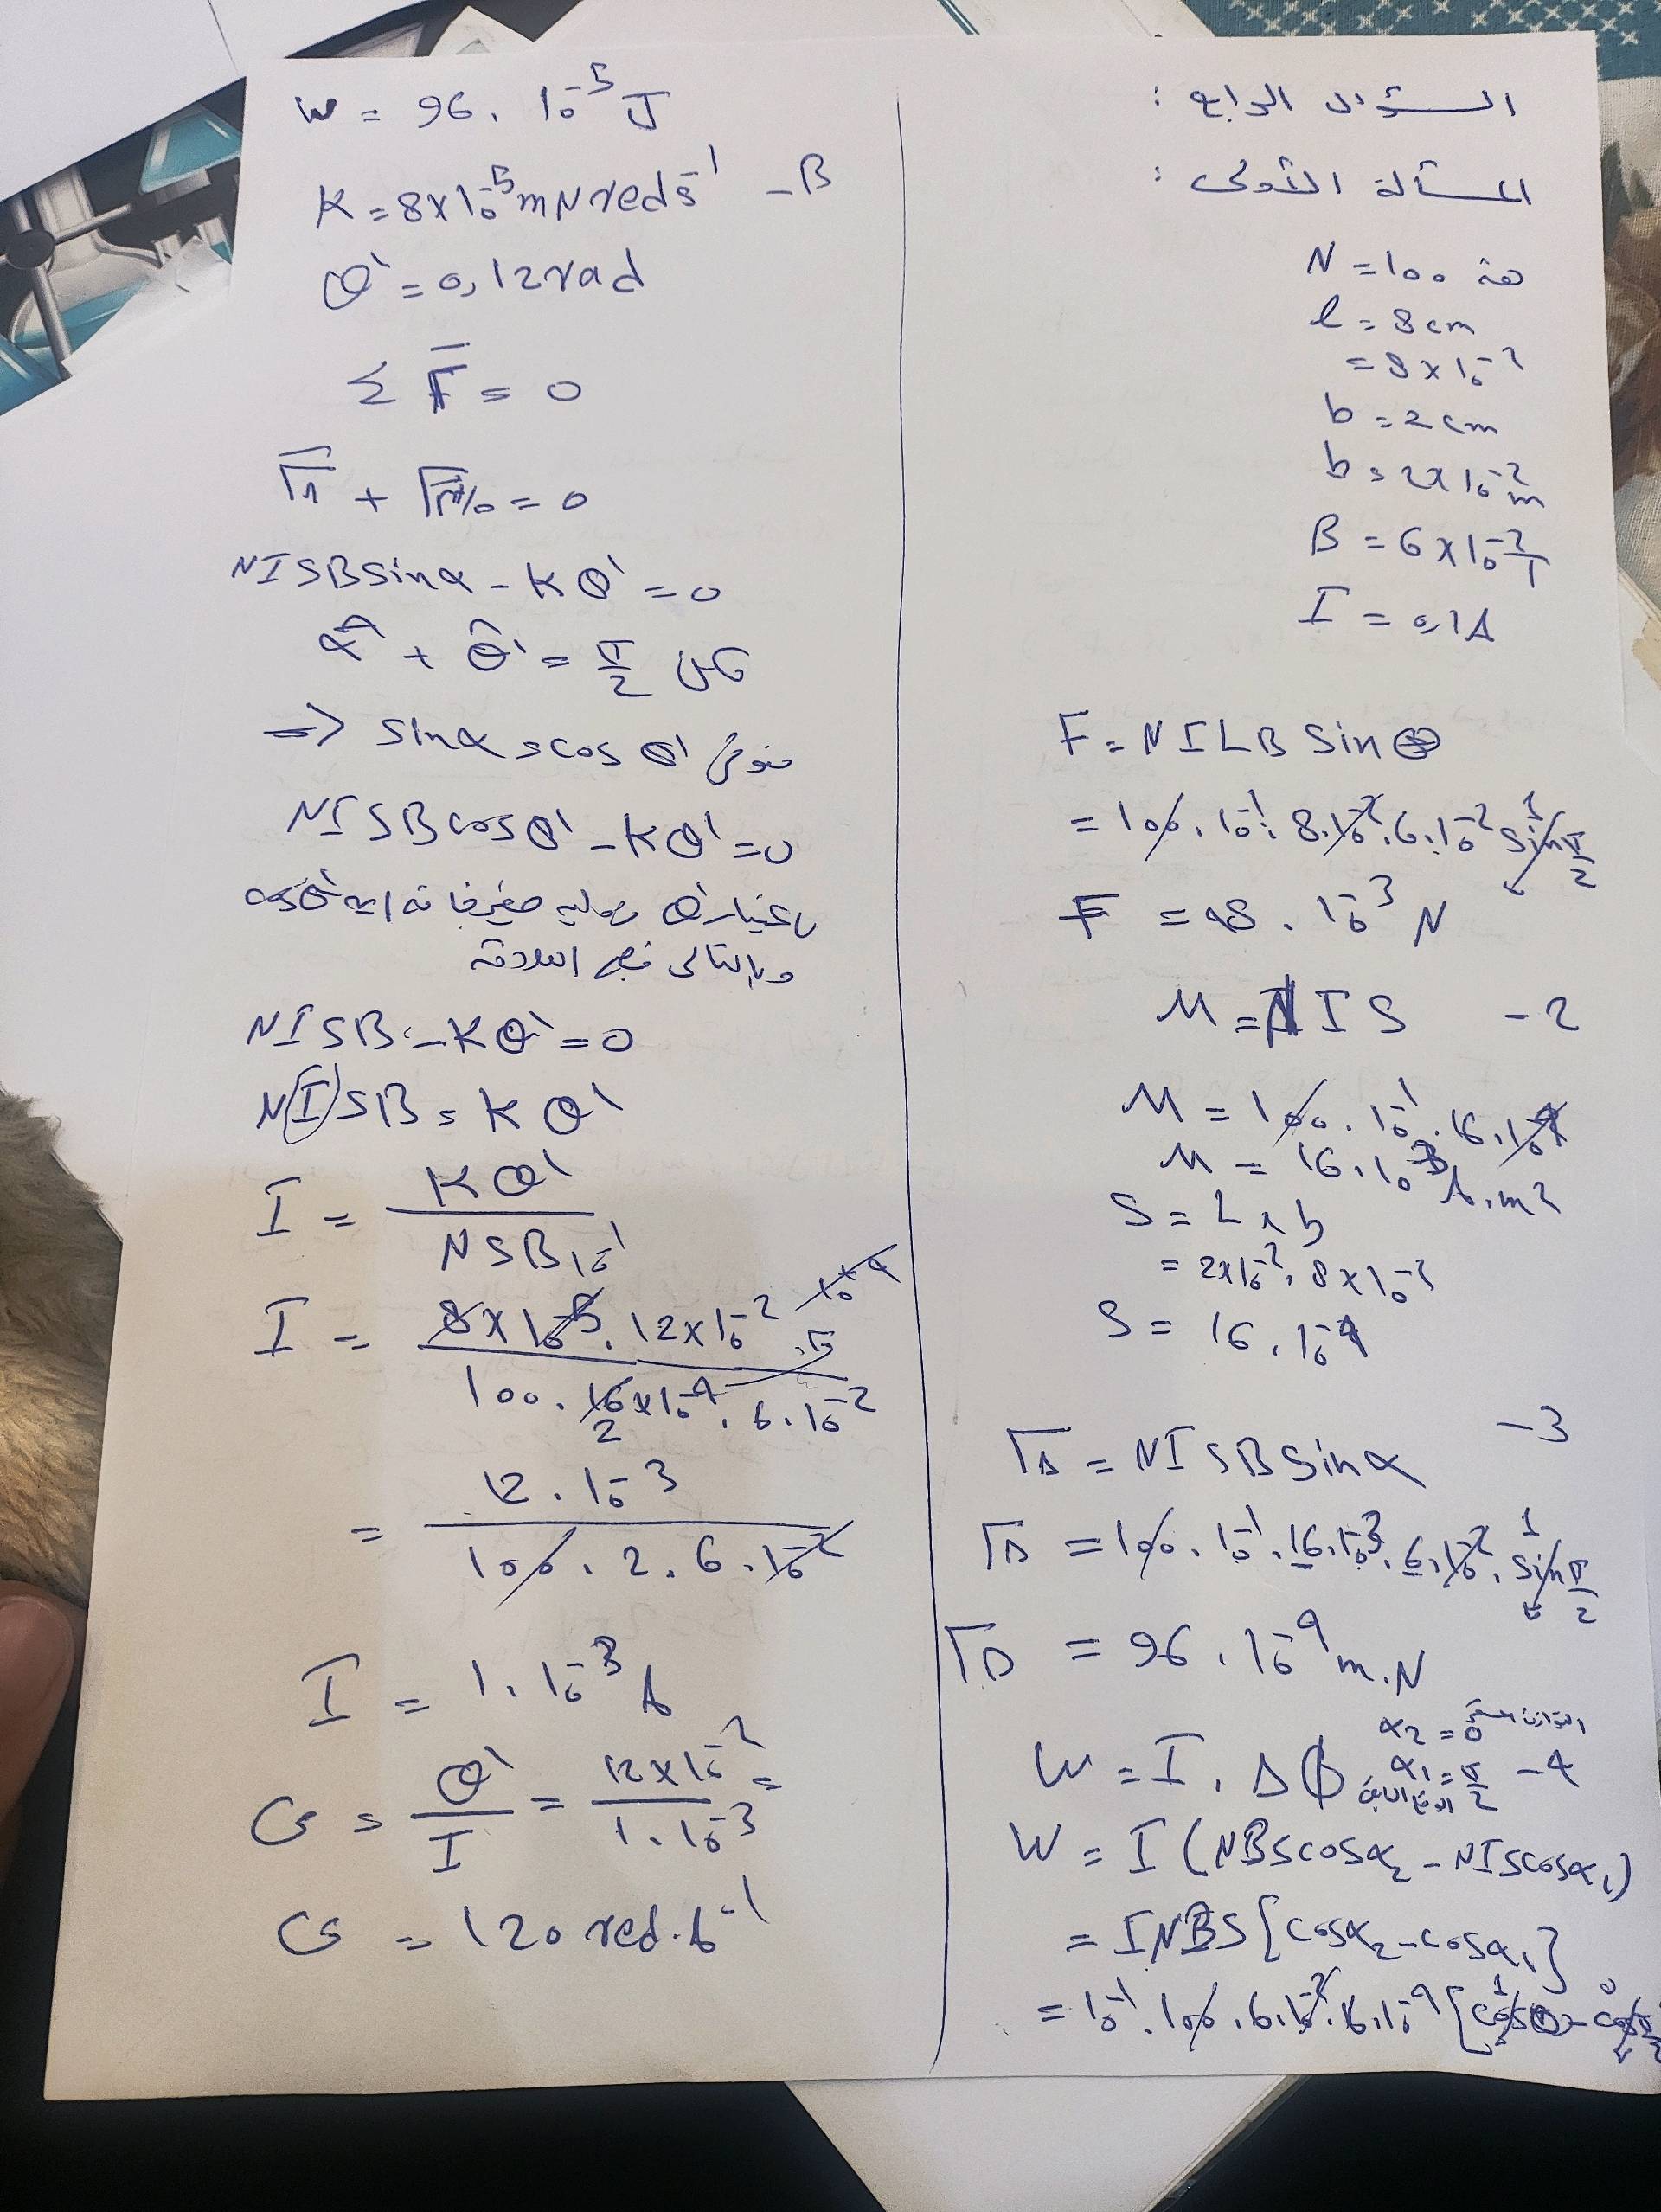 السؤال الرابع :
المسألة الأولى :
N = 100 لفة
l = 8 cm
= 8 × 10^-2
b = 2 cm
b = 2 × 10^-2 m
B = 6 × 10^-2 T
I = 0,1 A
F = N I L B Sin θ
= 100 . 10^-1 . 8.10^-2 . 6.10^-2 sin π/2 1
F = 48 . 10^-3 N
M = N I S - 2
M = 100 . 10^-1 . 16.10^-4
M = 16.10^-3 A.m2
S = L × b
= 2×10^-2 . 8×10^-2
S = 16 . 10^-4
ΓΔ = NISB Sin α - 3
ΓΔ = 100 . 10^-1 . 16.10^-3 . 6.10^-2 . sin π/2 1
ΓΔ = 96 . 10^-4 m.N
α2 = 0 التوازن المستقر
W = I . Δϕ α1 = π/2 - 4
W = I (NBS cosα2 - NIS cosα1)
= INBS [cosα2 - cosα1]
= 10^-1 . 100 . 6.10^-2 . 16.10^-4 [cos0 1 - cos π/2 0
W = 96 . 10^-5 J
K = 8×10^-5 mN red s^-1 - B
θ' = 0,12 rad
Σ Γ = 0
NISB Sin α - K θ' = 0
α + θ' = π/2 لكن
=> Sin α = cos θ' نعوض
NISB cos θ' - K θ' = 0
باعتبار θ' زاوية صغيرة فإن cosθ'
وبالتالي العلاقة
NISB - K θ' = 0
NISB = K θ'
I = K θ' / NSB 10^-1
I = 8×10^-5 . 12×10^-2 / 100 . 16×10^-4 . 6.10^-2 2
= 12 . 10^-3 / 100 . 2 . 6 . 10^-2
I = 1 . 10^-3 A
G = θ' / I = 12×10^-2 / 1.10^-3 =
G = 120 red.A^-1